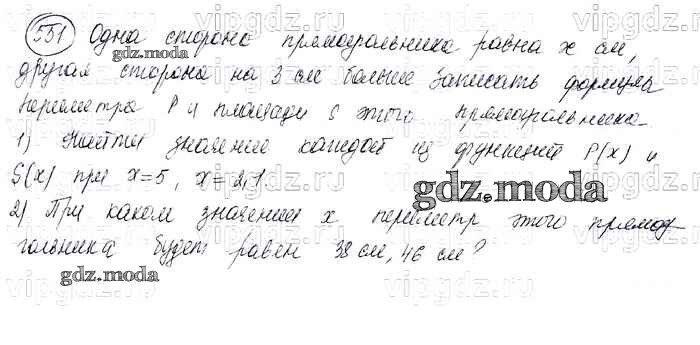 551 Одна сторона прямоугольника равна x см,
gdz.moda
другая сторона на 3 см больше Записать формулы
периметра P и площади S этого прямоугольника.
1) Найти значение каждой из функций P(x) и
S(x) при x=5, x=2,1.
gdz.moda
2) При каком значении x периметр этого прямоу-
гольника будет равен 38 см, 46 см?
gdz.moda